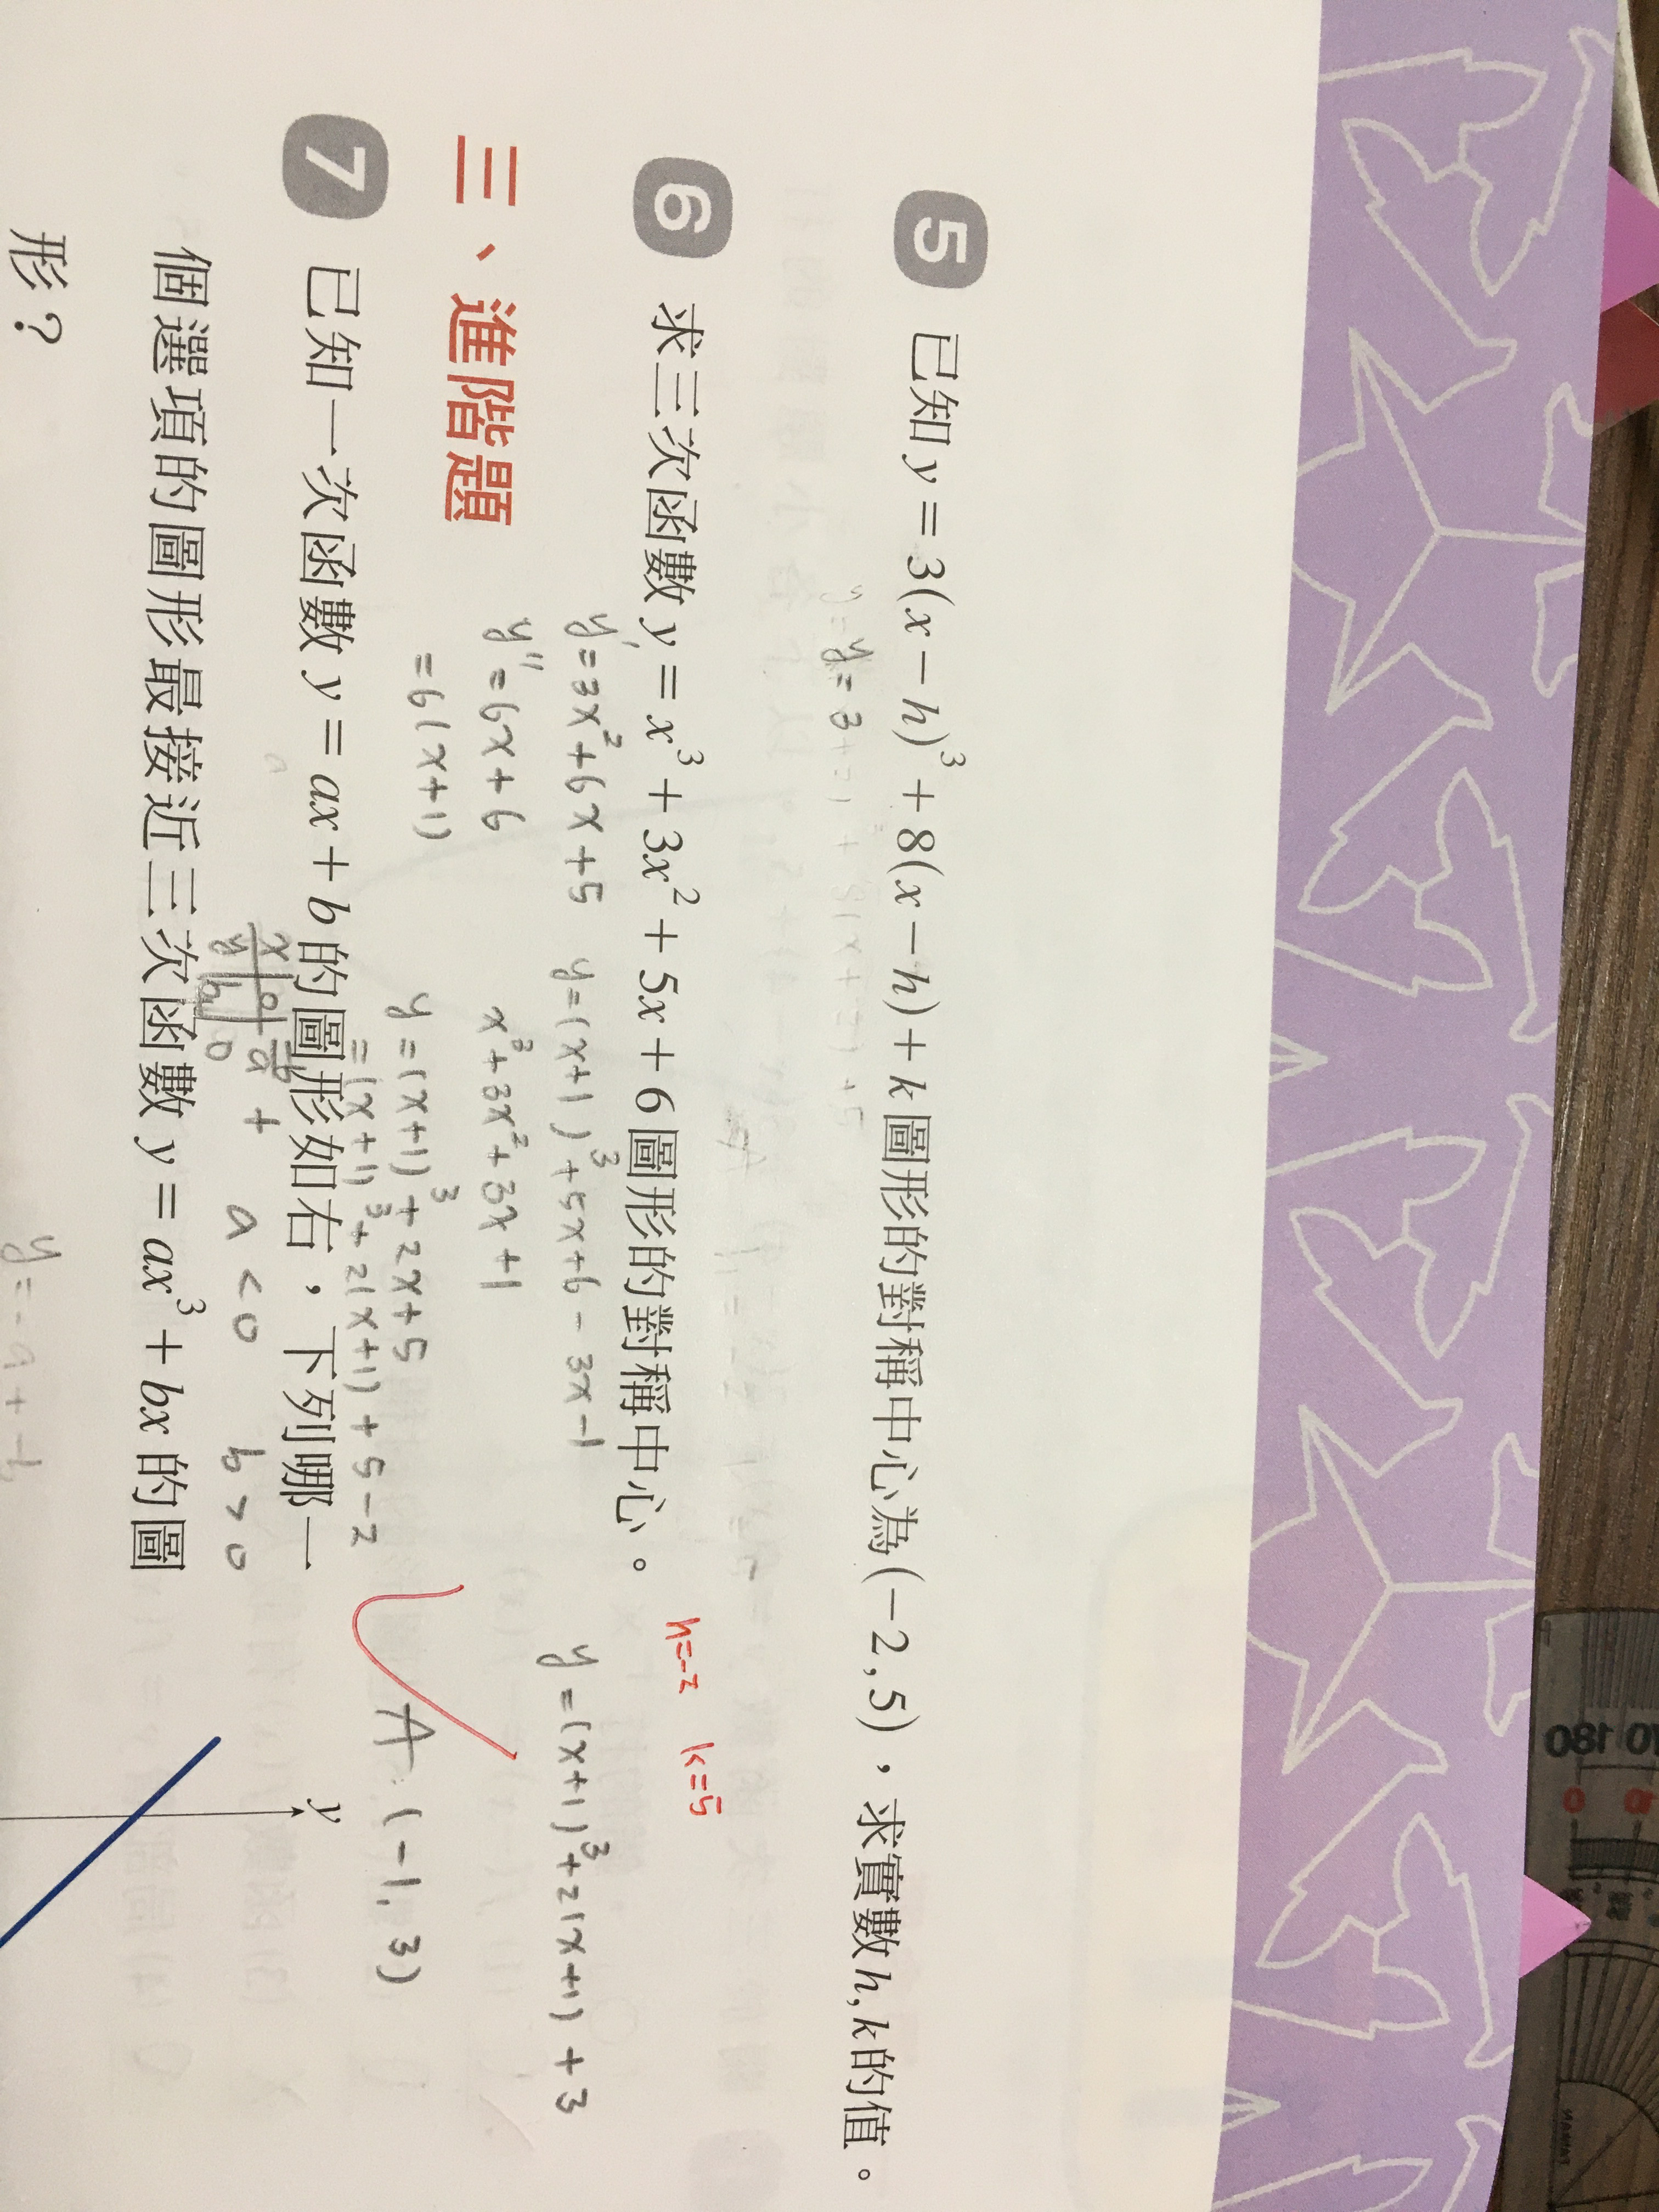 5 已知 y = 3(x − h)³ + 8(x − h) + k 圖形的對稱中心為 (−2, 5)，求實數 h, k 的值。
h=-2 k=5
6 求三次函數 y = x³ + 3x² + 5x + 6 圖形的對稱中心。
y' = 3x² + 6x + 5
y = (x+1)³ + 5x + 6 - 3x - 1
y = (x+1)³ + 2(x+1) + 3
y'' = 6x + 6
x³ + 3x² + 3x + 1
= 6(x+1)
y = (x+1)³ + 2x + 5
= (x+1)³ + 2(x+1) + 5 - 2
A: (-1, 3)
三、進階題
7 已知一次函數 y = ax + b 的圖形如右，下列哪一
x 0 -b/a
y b 0
a < 0 b > 0
個選項的圖形最接近三次函數 y = ax³ + bx 的圖
形？
y
180
0